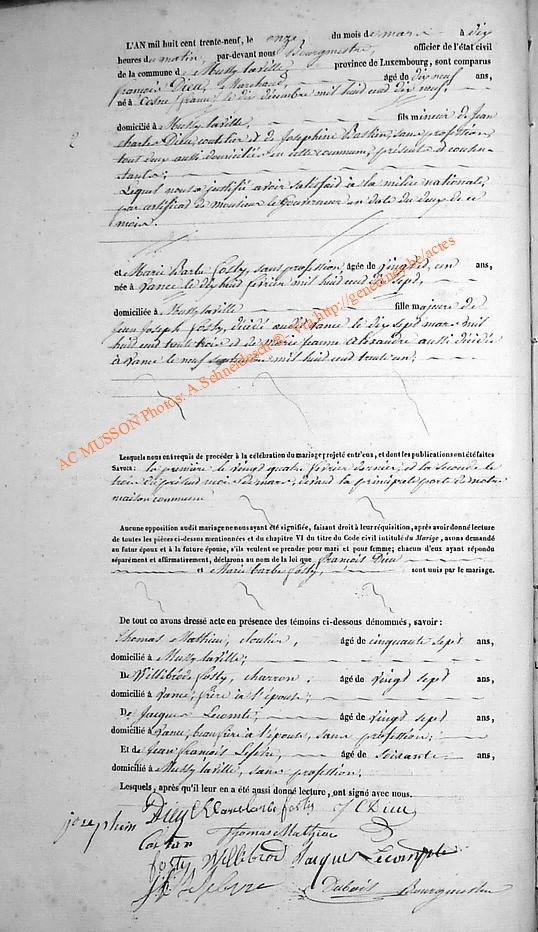 L'AN mil huit cent trente-neuf, le onze du mois de mars à dix
heures du matin, par-devant nous Bourgmestre, officier de l'état civil
de la commune de Mussy la ville province de Luxembourg, sont comparus
françois Dieu, Marchand, âgé de dix neuf ans,
né à france, le dix décembre mil huit cent dix neuf,
domicilié à Mussy la ville, fils mineur de Jean
charles Dieu, coutelier et de Josephine sans profession,
tous deux aussi domiciliés en cette commune, présents et consen-
tants;
Lequel nous a justifié avoir satisfait à la milice nationale,
par certificat de monsieur le Gouverneur en date du deux de ce
mois.
2
et Marie Barbe fosty, sans profession, âgée de vingt et un ans,
née à Vance le dix huit février mil huit cent dix sept,
domiciliée à Mussy la ville fille majeure de
Jean Joseph fosty, décédé audit Vance le dix sept mars mil
huit cent trente trois et de Marie Jeanne Alexandre aussi décédée
à Vance le neuf septembre mil huit cent trente un;
AC MUSSON Photos: A.Schneidesch © - via http://geneanet.be/actes
Lesquels nous ont requis de procéder à la célébration du mariage projeté entr'eux, et dont les publications ont été faites
Savoir: la première le vingt quatre février dernier, et la seconde le
trois du présent mois de mars, devant la principale porte de notre
maison commune
Aucune opposition audit mariage ne nous ayant été signifiée, faisant droit à leur réquisition, après avoir donné lecture
de toutes les pièces ci-dessus mentionnées et du chapitre VI du titre du Code civil intitulé du Mariage, avons demandé
au futur époux et à la future épouse, s'ils veulent se prendre pour mari et pour femme; chacun d'eux ayant répondu
séparément et affirmativement, déclarons au nom de la loi que françois Dieu
et Marie barbe fosty, sont unis par le mariage.
De tout ce avons dressé acte en présence des témoins ci-dessous dénommés, savoir:
Thomas Mathieu, cloutier, âgé de cinquante sept ans,
domicilié à Mussy la ville;
De Willibrod fosty, charron, âgé de vingt sept ans,
domicilié à Vance, frère à l'épouse;
De Jacques Lecomte, âgé de vingt sept ans,
domicilié à Vance, beau frère à l'épouse, sans profession;
Et de Jean françois Lefèvre, âgé de soixante ans,
domicilié à Mussy la ville, sans profession;
Lesquels, après qu'il leur en a été aussi donné lecture, ont signé avec nous.
Dieu Marie barbe fosty J C Dieu
josephin
Thomas Mathieu
fosty Willibrod Jacques Lecompte
J f Lefebvre Dubois Bourgmestre